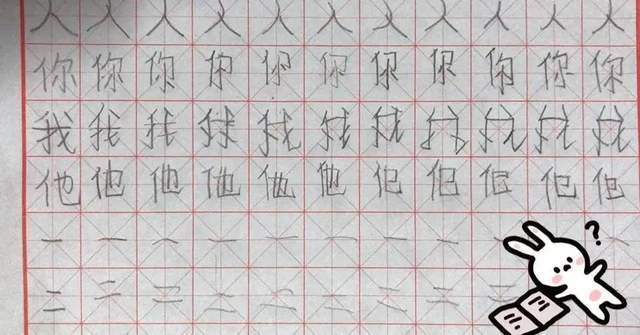 人人人人人人人人人人人
你你你你你你你你你你你
我我我我我我我我我我我
他他他他他他他他他他他
一一一一一一一一
二二二二二二二二